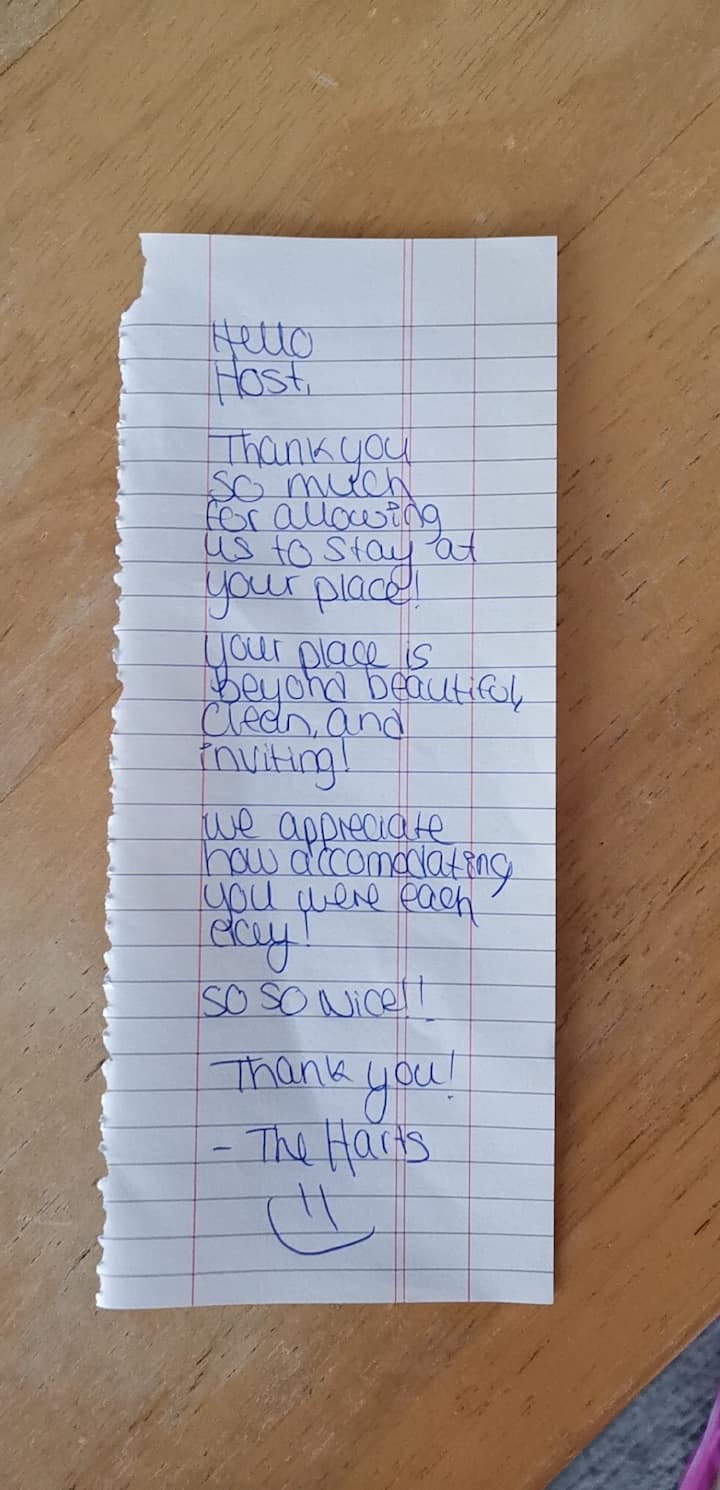 Hello
Host,
Thank you
so much
for allowing
us to stay at
your place!
your place is
Beyond beautiful,
clean, and
inviting!
we appreciate
how accomodating
you were each
day!
so so nice!!
Thank you!
- The Harts